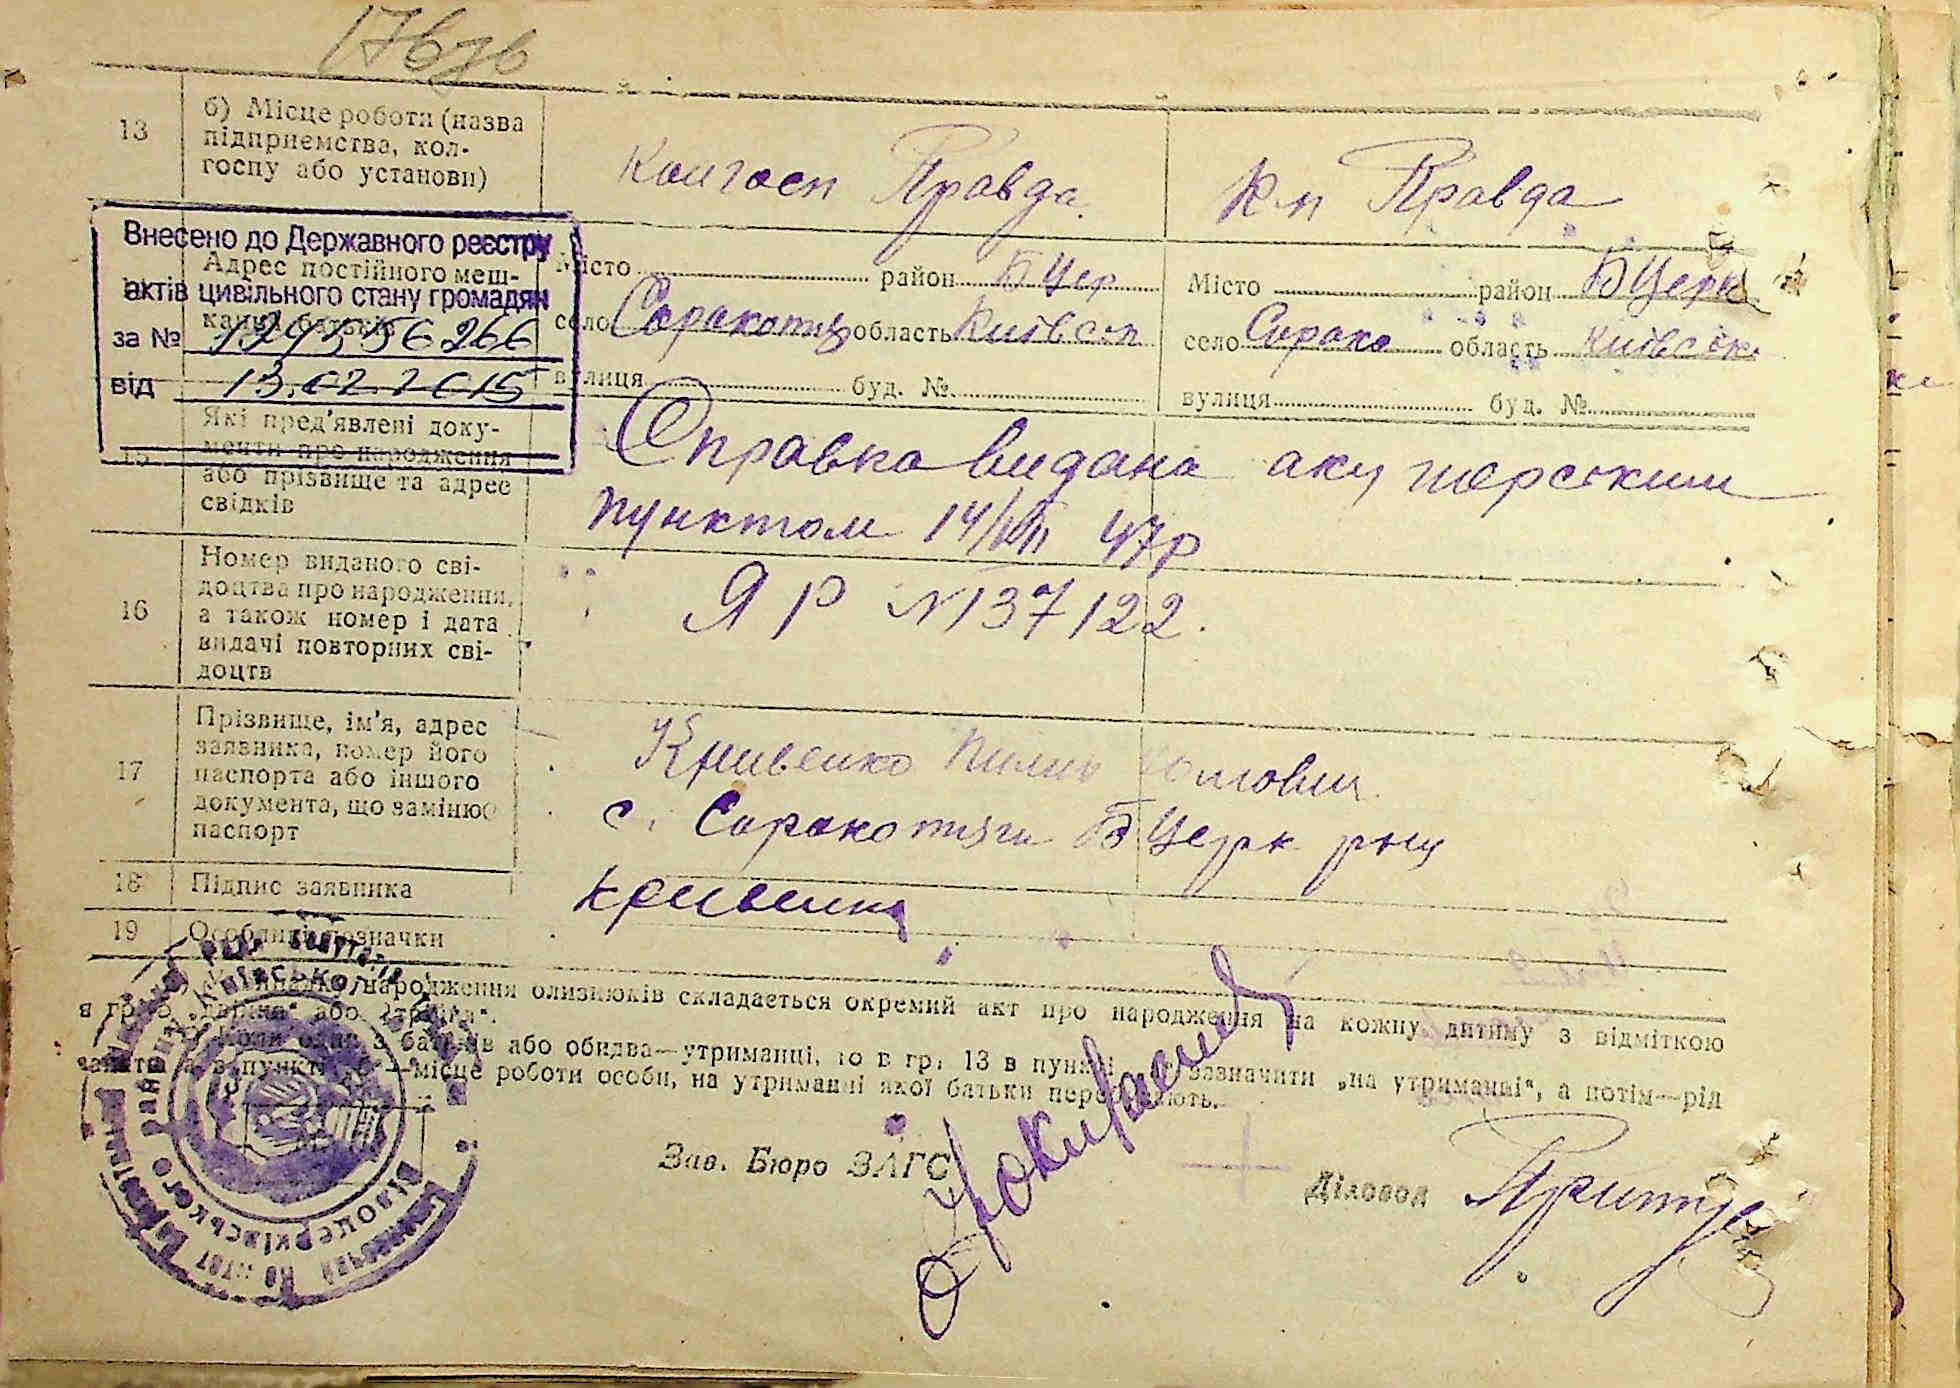 13
б) Місце роботи (назва
підприємства, кол-
госпу або установи)
Колгосп Правда
К-п Правда
Внесено до Державного реєстру
актів цивільного стану громадян
за №
від 13.02.2015
Адрес постійного меш-
кання батьків
Місто район Б Цер
село Сорокотяг область Київськ
вулиця буд. №
Місто район Б Церк
село Сороко область Київськ
вулиця буд. №
15
Які пред'явлені доку-
менти про народження
або прізвище та адрес
свідків
Справка видана акушерським
пунктом 14/VIII 47р
16
Номер виданого сві-
доцтва про народження,
а також номер і дата
видачі повторних сві-
доцтв
ЯР №137122.
17
Прізвище, ім'я, адрес
заявника, номер його
паспорта або іншого
документа, що замінює
паспорт
Кривенко Пилип
с. Сорокотяги Б Церк р-ну
18
Підпис заявника
Кривенко
19
Особливі позначки
народження близнюків складається окремий акт про народження на кожну дитину з відміткою
в гр. 5 „двійня“ або „трійня“.
Коли один з батьків або обидва—утриманці, то в гр. 13 в пункті зазначити „на утриманні“, а потім—рід
заняття, а в пункті —місце роботи особи, на утриманні якої батьки перебувають.
Зав. Бюро ЗАГС
Діловод
Білоцерківського району Київської